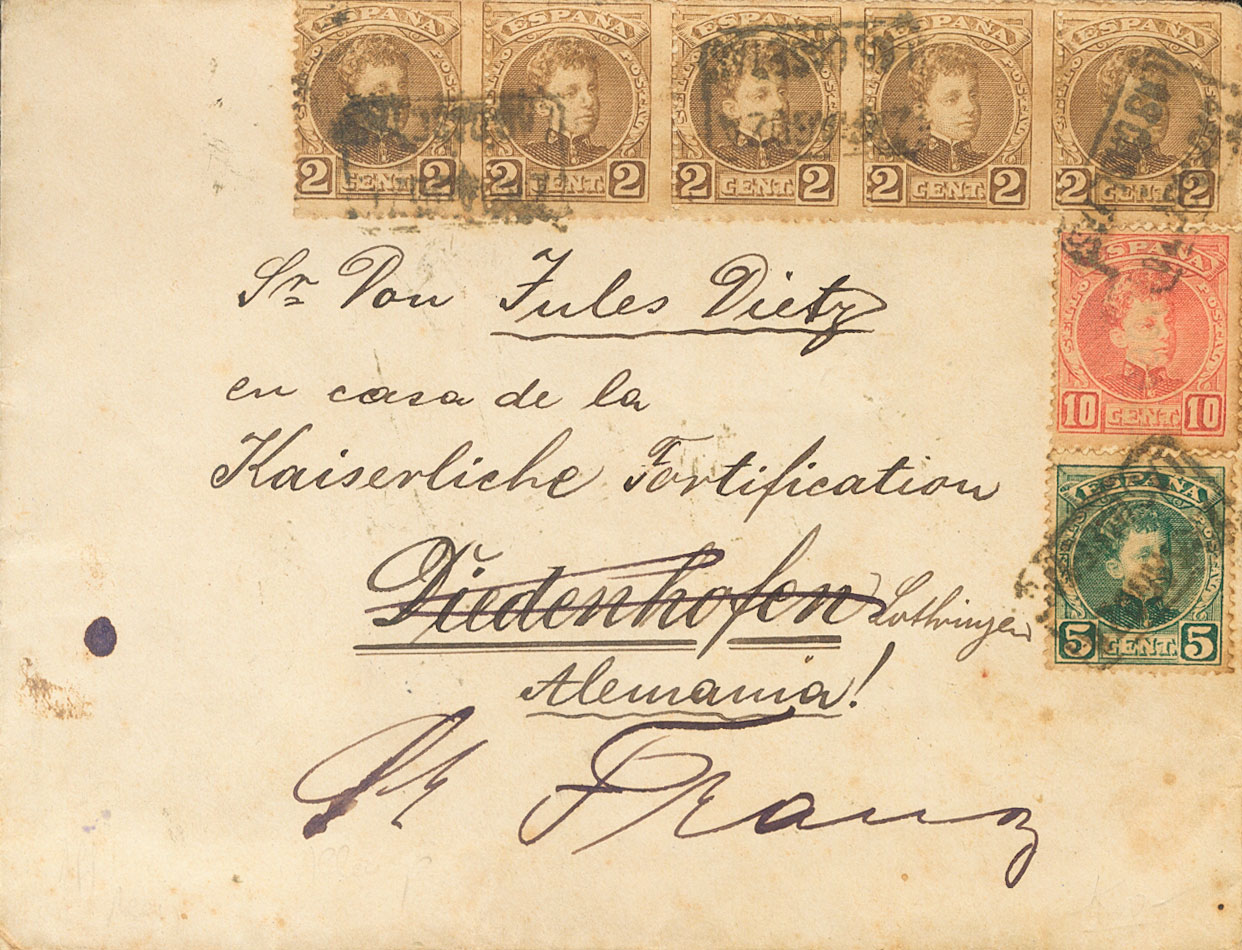 ESPAÑA ESPAÑA ESPAÑA ESPAÑA ESPAÑA
SELLO POSTAL SELLO POSTAL SELLO POSTAL SELLO POSTAL SELLO POSTAL
2 CENT. 2 2 CENT. 2 2 CENT. 2 2 CENT. 2 2 CENT. 2
ESPAÑA
SELLO POSTAL
10 CENT. 10
ESPAÑA
SELLO POSTAL
5 CENT. 5
Sr Don Jules Dietz
en casa de la
Kaiserliche Fortification
Diedenhofen Lothringen
Alemania!
Franz